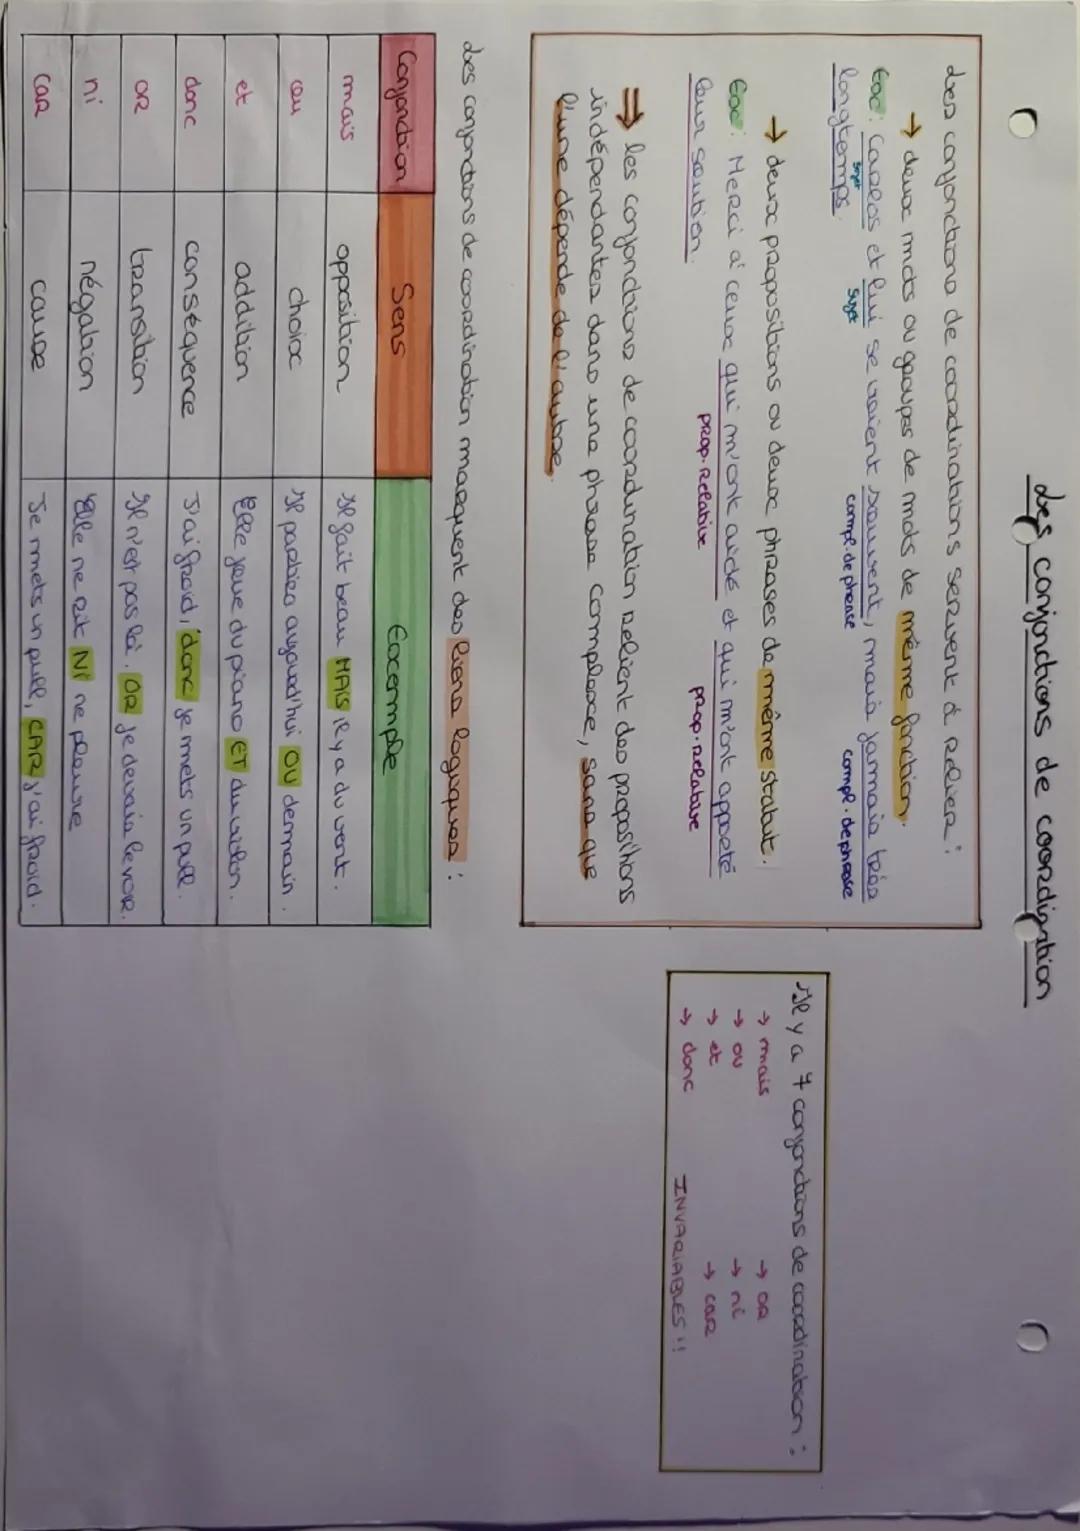 Les conjonctions de coordination
Les conjonctions de coordinations servent à relier :
→ deux mots ou groupes de mots de même fonction.
Ex : Carlos et lui se voient souvent, mais jamais très
sujet sujet compl. de phrase compl. de phrase
longtemps.
→ deux propositions ou deux phrases de même statut.
Ex : Merci à ceux qui m'ont aidé et qui m'ont apporté
prop. relative prop. relative
leur soutien.
⇒ les conjonctions de coordination relient des propositions
indépendantes dans une phrase complexe, sans que
l'une dépende de l'autre.
Il y a 7 conjonctions de coordination :
→ mais → or
→ ou → ni
→ et → car
→ donc INVARIABLES !!
Les conjonctions de coordination marquent des liens logiques :
Conjonction Sens Exemple
mais opposition Il fait beau MAIS il y a du vent.
ou choix Il partira aujourd'hui OU demain.
et addition Elle joue du piano ET du violon.
donc conséquence J'ai froid, donc je mets un pull.
or transition Il n'est pas là. OR je devais le voir.
ni négation Elle ne rit NI ne pleure
car cause Je mets un pull, CAR j'ai froid.